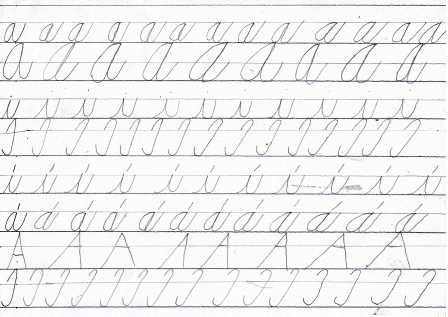 a a a a a a a a a a a a
a a a a a a a a a
i i i i i i i i i i i i
I I I I I I I I I I I I I
í í í í í í í í í í í
á á á á á á á á á á á á
A A A A A A A A
I I I I I I I I I I I I I